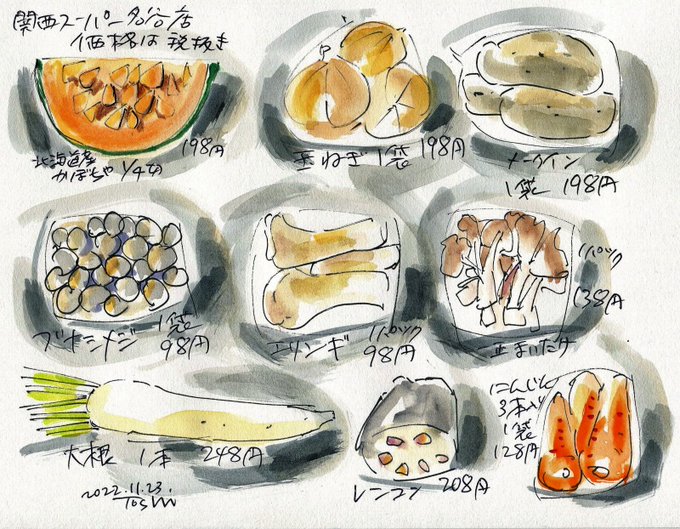 関西スーパー名谷店
価格は税抜き
北海道産
かぼちゃ 1/4切
198円
玉ねぎ 1袋 198円
メークイン
1袋 198円
ブナシメジ
1袋
98円
エリンギ
1パック
98円
1パック
138円
まいたけ
大根 1本 248円
レンコン 208円
にんじん
3本入り
1袋
128円
2022.11.23.
Toshi